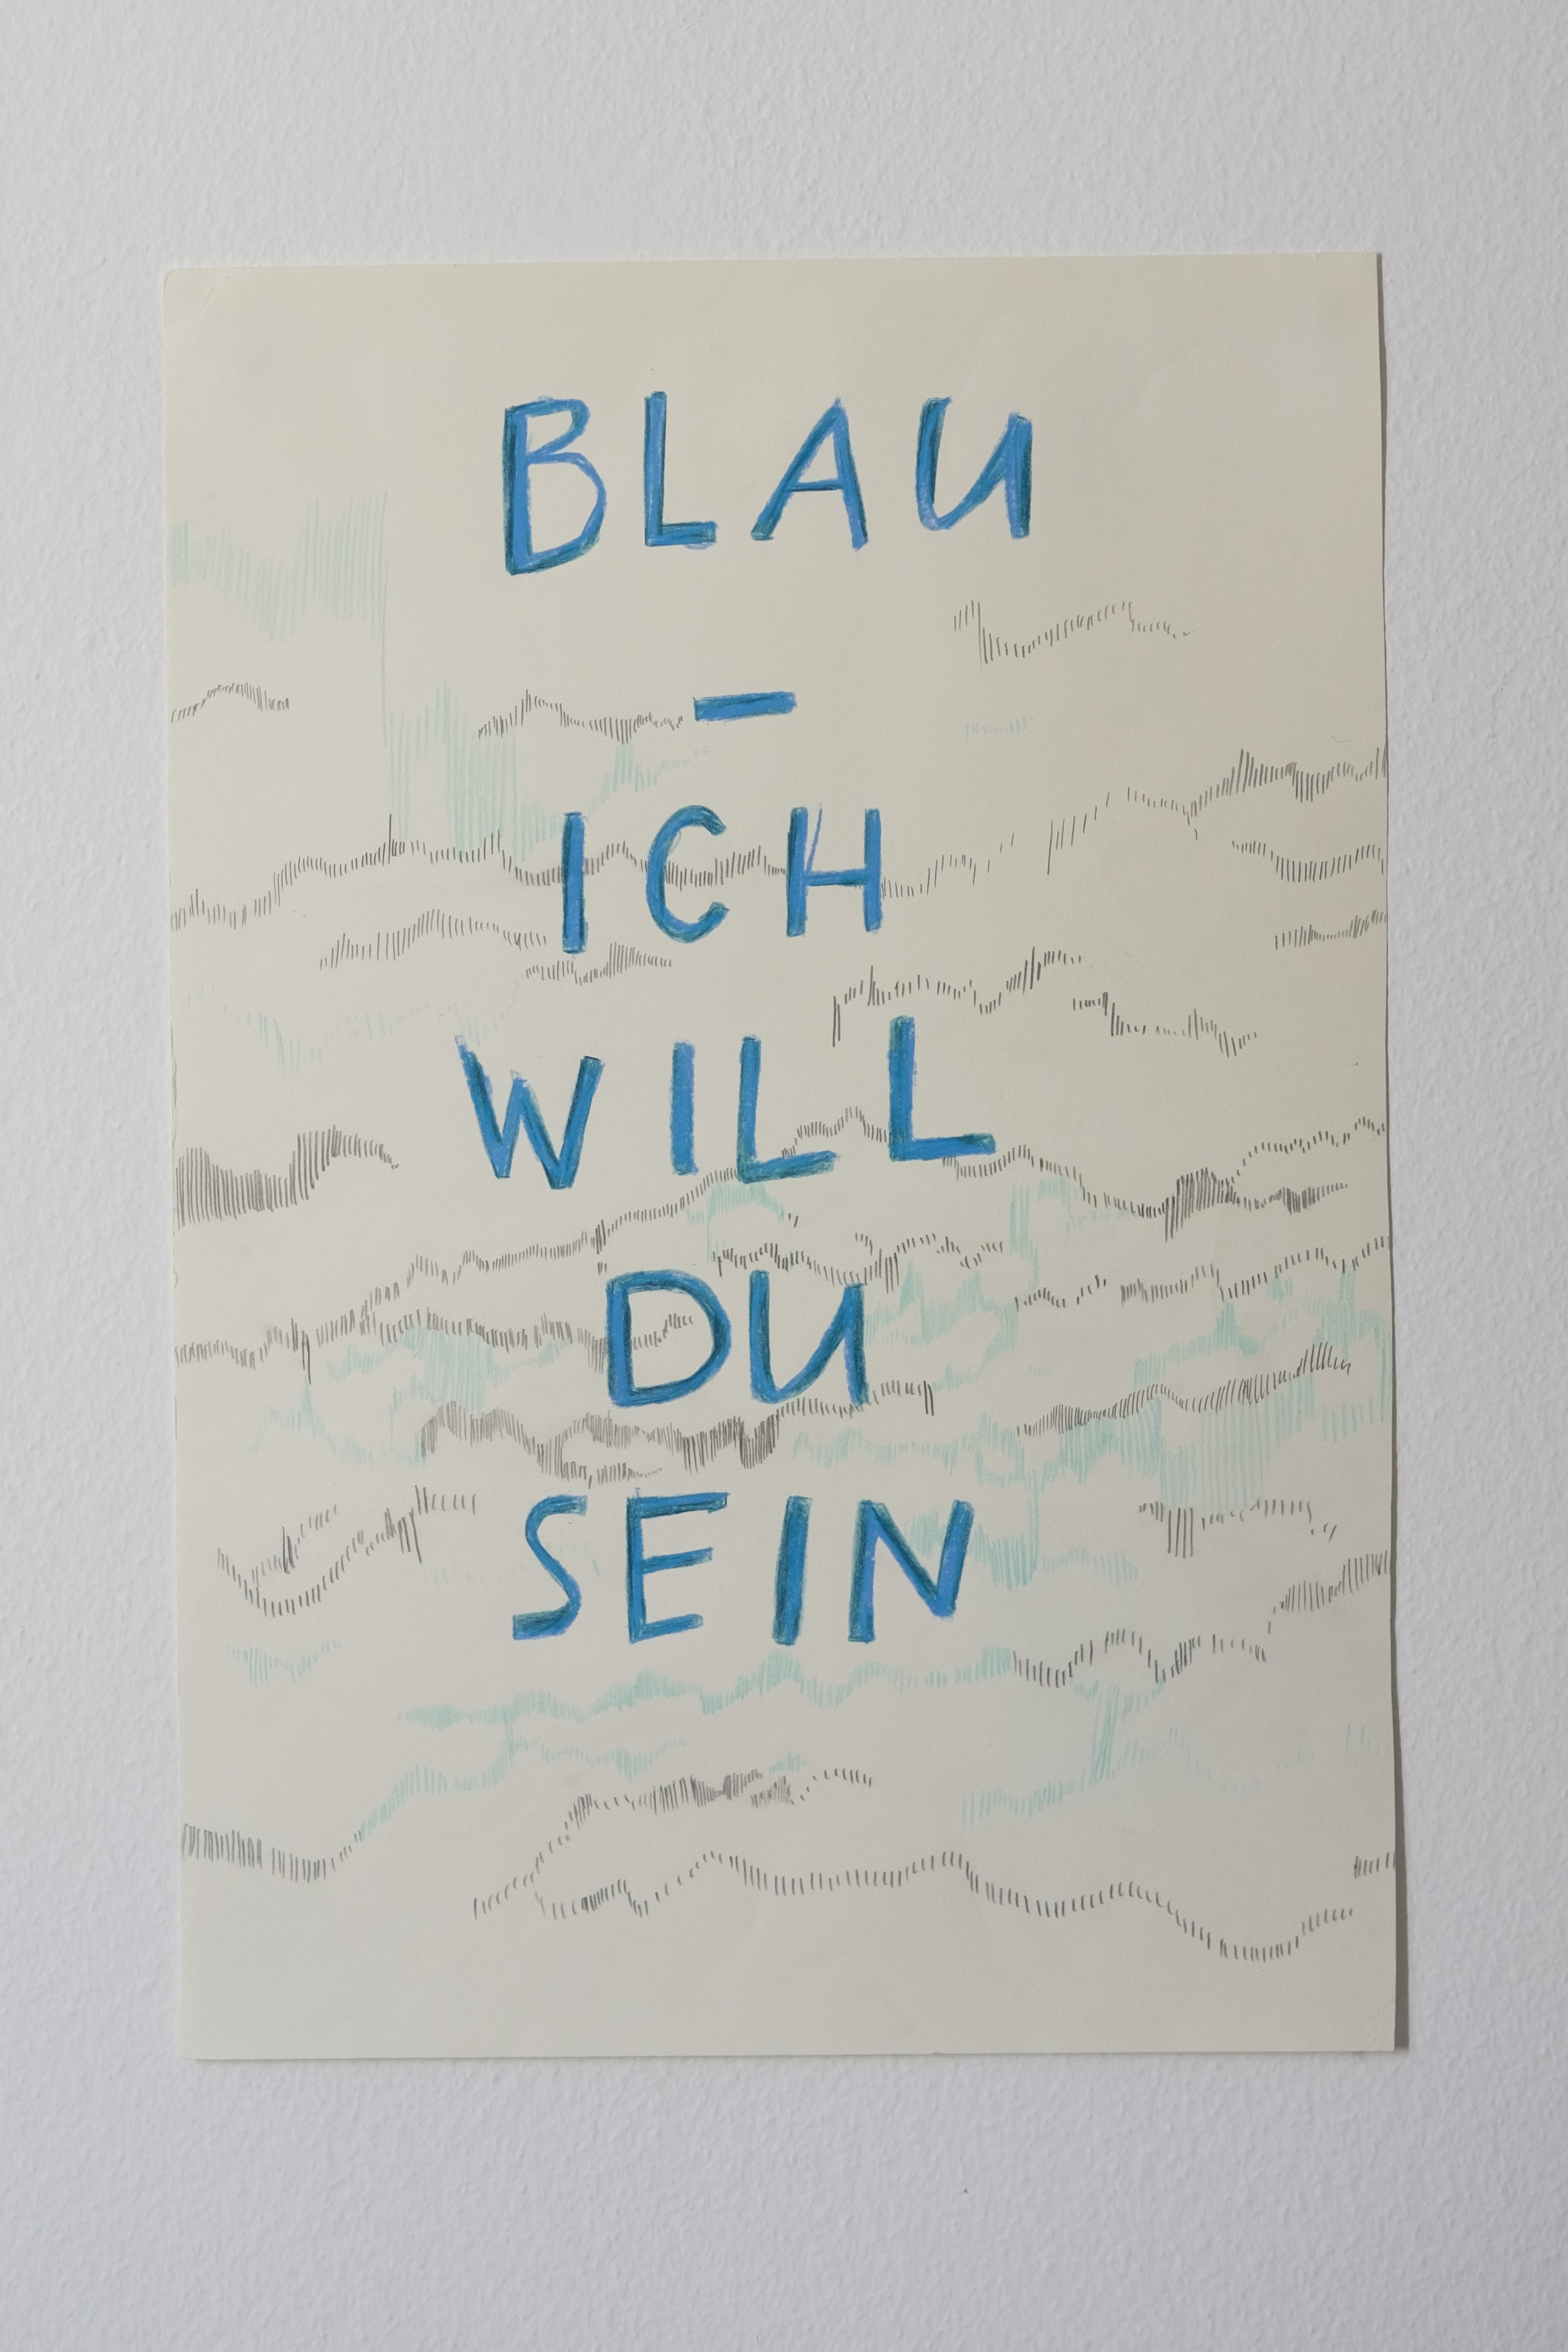 BLAU
–
ICH
WILL
DU
SEIN